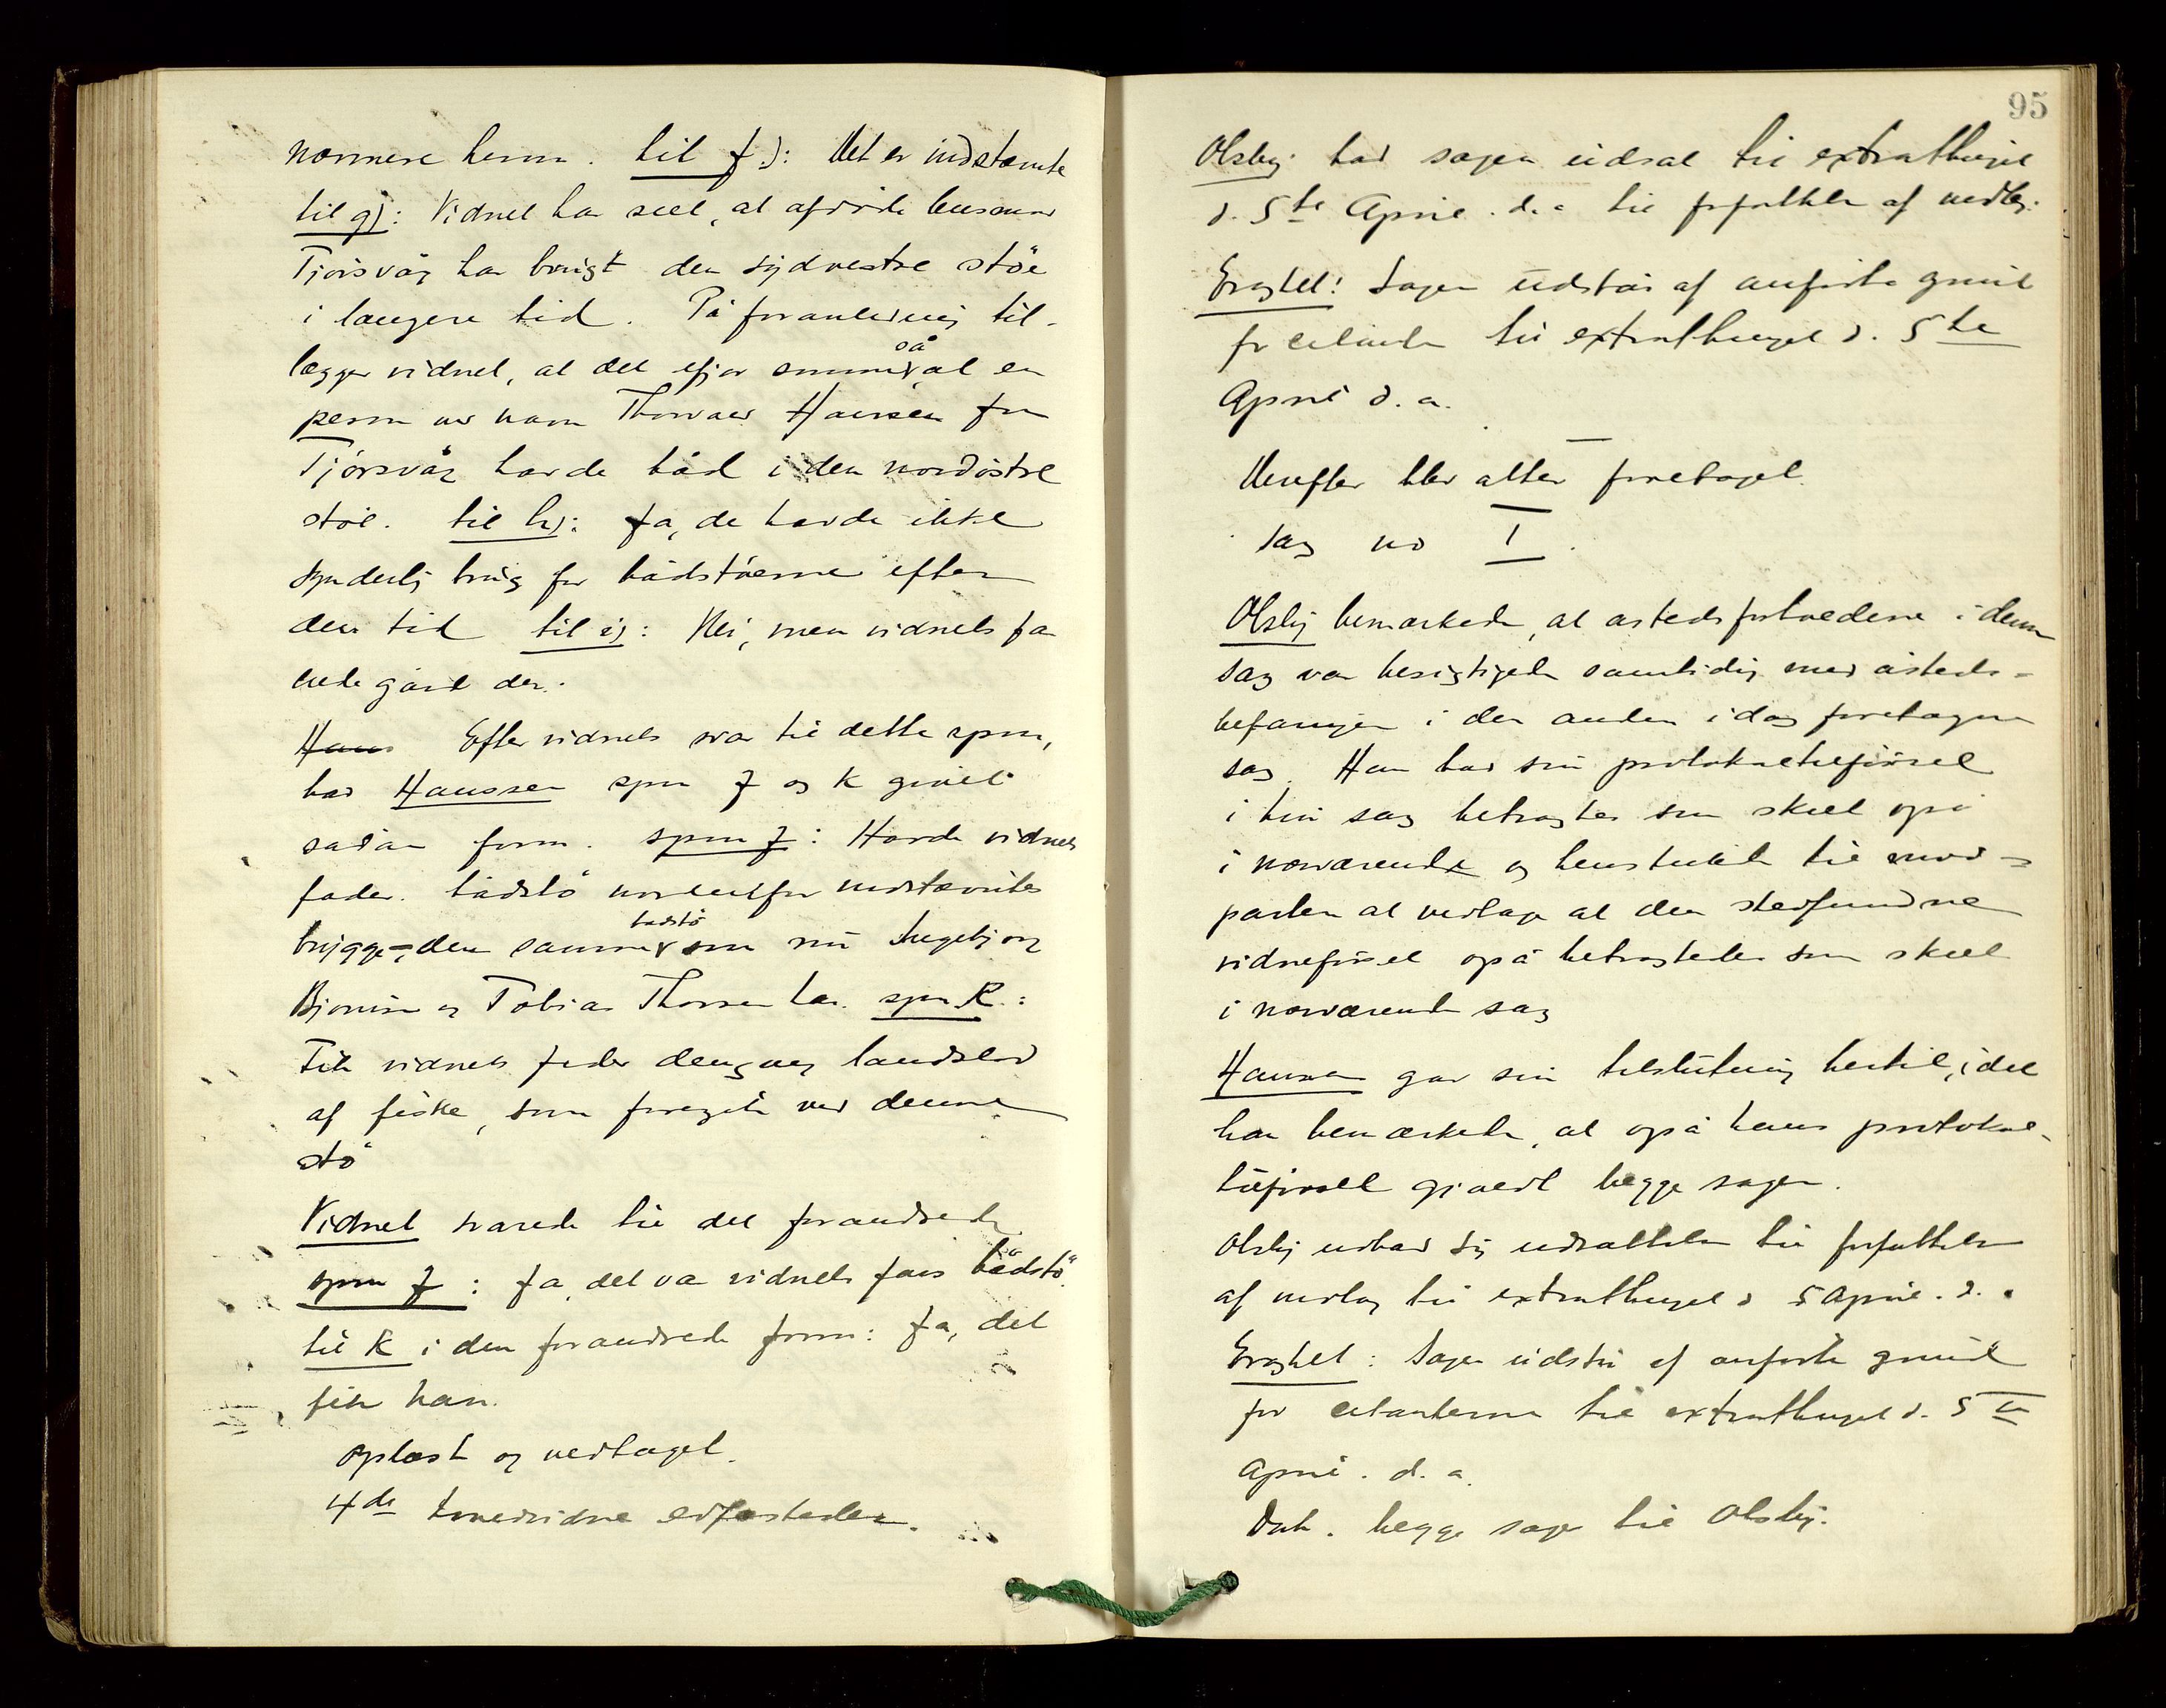 nærmere herom. til f.): Det er indstævnte
til g): Vidnet har seet, at afdøde Rasmus
Tjörsvåg har brugt den sydvestre støe
i længere tid. På foranledning til-
lægger vidnet, at det ifjor sommer så at en
person ved navn Thorvald Hansen fra
Tjörsvåg havde båd i den nordöstre
stöe. til h): Ja, de havde ikke
synderlig brug for bådstöerne efter
den tid til i): Nei, men vidnets fa
eiede gård der.
Hans Efter vidnets svar til dette spm,
bad Hanssen spm J og K givet
sådan form. spm J: Havde vidnets
fader bådstö nordenfor indstævntes
brygge, den samme bådstö som nu Ingebjorg
Bjornsen og Tobias Thorsen har. spm K.:
Fik vidnets fader dengang landslod
af fiske, som foregik ved denne
stö
Vidnet svarede til det forandrede
spm J: Ja, det var vidnets fars bådstö.
til K i den forandrede form: Ja, det
fik han.
Oplæst og vedtaget.
4de hovedvidne edfæstedes.
95
Olsby bad sagen udsat til extrathinget
d. 5te April d.a til forfattelse af indlæg.
Eragtet: Sagen udstår af anførte grund
for citanten til extrathinget d. 5te
April d. a.
Derefter blev atter foretaget
Sag no I.
Olsby bemærkede, at åstedsforholdene i denne
sag var besigtigede samtidig med åsteds-
befaringen i den anden idag foretagne
sag. Han bad sin protokoltilförsel
i hin sag betragtes som skeet også
i nærværende og henstillede til mod-
parten at vedtage at den stedfundne
vidneförsel også betragtedes som skeet
i nærværende sag
Hanssen gav sin tilslutning hertil, idet
han bemærkede, at også hans protokol-
tilförsel gjaldt begge sager.
Olsby udbad sig udsættelse til forfattelse
af indlæg til extrathinget d 5 April. d. a
Eragtet: Sagen udstår af anförte grund
for citanterne til extrathinget d. 5te
April. d. a.
Dok. begge sager til Olsby.